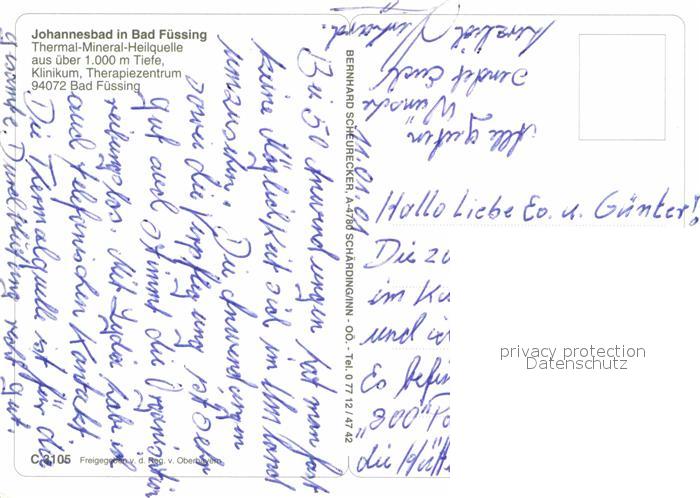 Johannesbad in Bad Füssing
Thermal-Mineral-Heilquelle
aus über 1.000 m Tiefe,
Klinikum, Therapiezentrum
94072 Bad Füssing
BERNHARD SCHEURECKER, A-4780 SCHÄRDING/INN - OÖ. - Tel. 0 77 12 / 47 42
11.01.
Hallo Liebe Ev. u. Günter!
Die zu
im Ku
und
Es befin
"300"
die Hälf
Bei 50 Anwendungen hat man fast
keine Möglichkeit sich im Umland
umzusehen. Die Anwendungen
sowie die Verpflegung ist sehr
gut auch stimmt die Organisation
reibungslos. Mit Lydia habe ich
auch telefonischen Kontakt.
Die Thermalquelle ist für die
gesamte Durchblutung recht gut.
Alle guten
Wünsche
sendet Euch
herzlich
C 3105 Freigegeben v. d. Reg. v. Oberbayern
privacy protection
Datenschutz